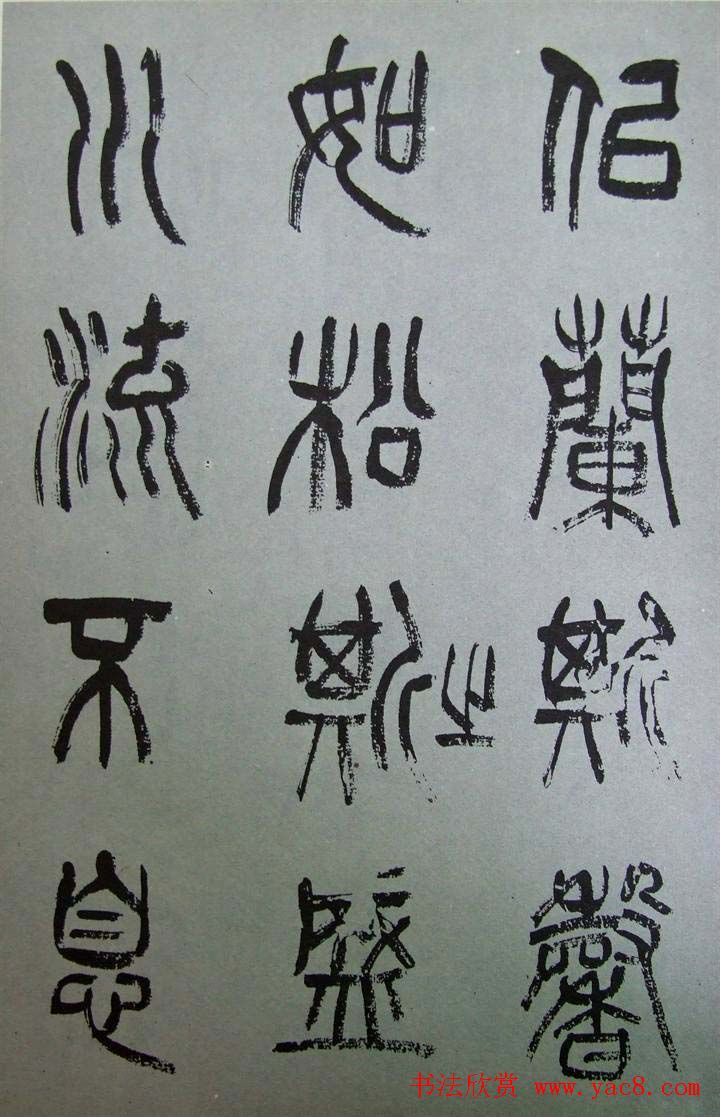 似蘭斯馨
如松斯之盛
川流不息
书法欣赏 www.yac8.com